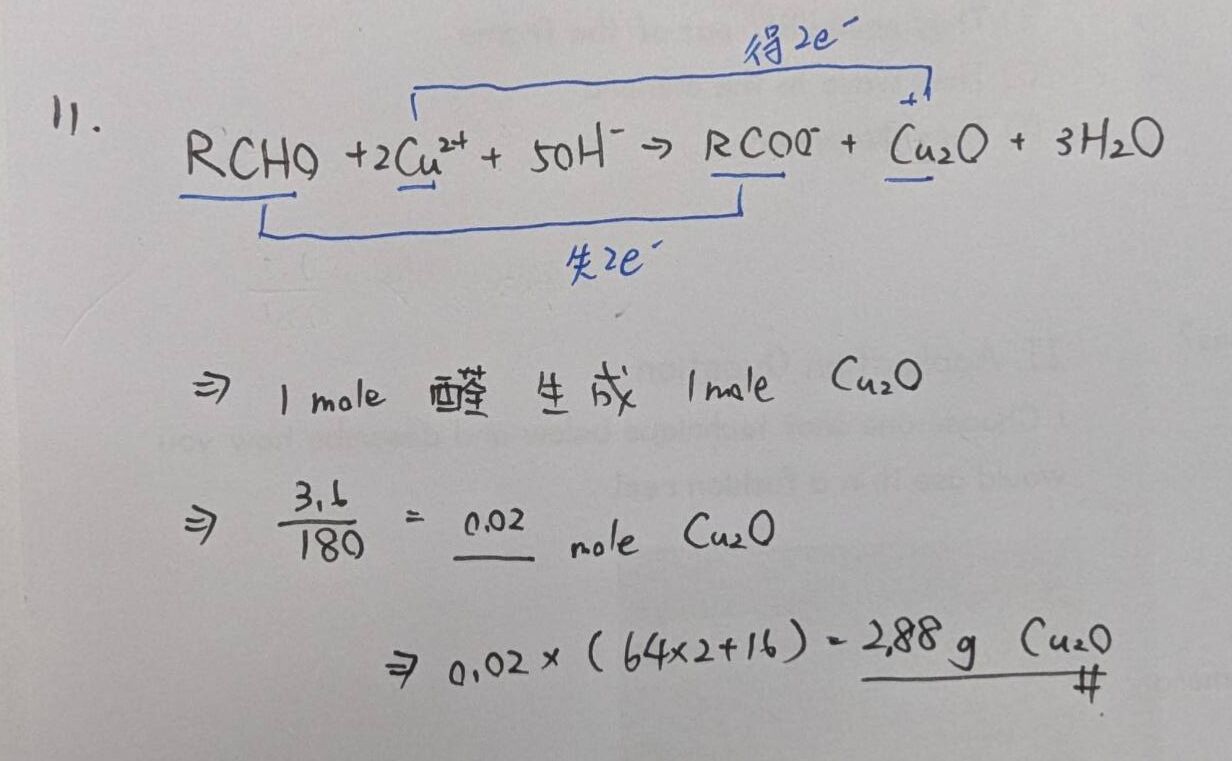 得2e⁻
11.
+
RCHO +2Cu²⁺ + 5OH⁻ → RCOO⁻ + Cu₂O + 3H₂O
失2e⁻
⇒ 1 mole 醛 生成 1 mole Cu₂O
⇒ 3.6/180 = 0.02 mole Cu₂O
⇒ 0.02 × (64×2+16) = 2.88 g Cu₂O #